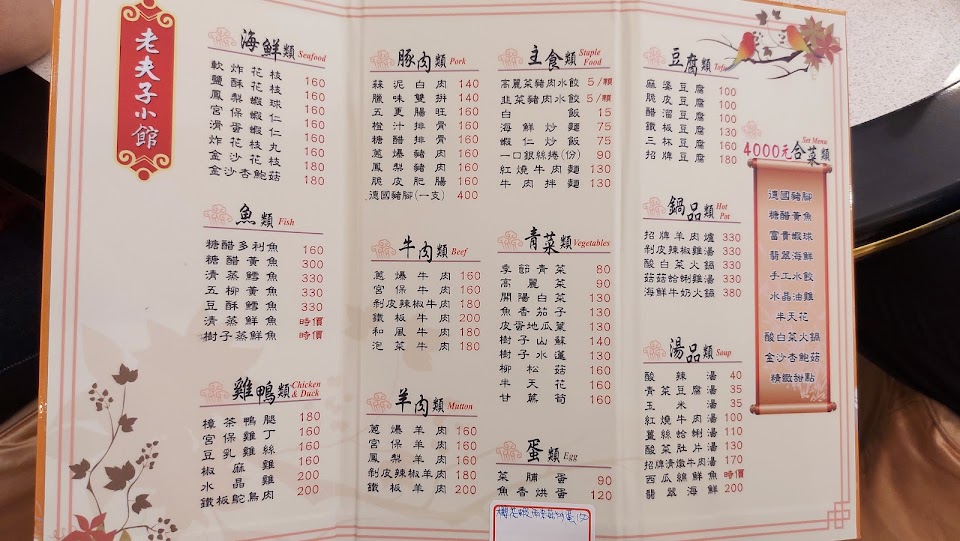 老夫子小館
海鮮類 Seafood
軟炸花枝 160
鹽酥花枝 160
鳳梨蝦球 160
宮保蝦仁 160
滑蛋蝦仁 160
炸花枝丸 160
金沙花枝 180
金沙杏鮑菇 180
魚類 Fish
糖醋多利魚 160
糖醋黃魚 300
清蒸鱈魚 330
五柳黃魚 330
豆酥鱈魚 330
清蒸鮮魚 時價
樹子蒸鮮魚 時價
雞鴨類 Chicken & Duck
樟茶鴨腿 180
宮保雞丁 160
豆乳雞絲 160
椒麻雞 160
水晶雞 200
鐵板鴕鳥肉 200
豚肉類 Pork
蒜泥白肉 140
臘味雙拼 140
五更腸旺 160
橙汁排骨 160
糖醋排骨 160
蔥爆豬肉 160
鳳梨豬肉 160
脆皮肥腸 160
德國豬腳(一支) 400
牛肉類 Beef
蔥爆牛肉 160
宮保牛肉 160
剝皮辣椒牛肉 180
鐵板牛肉 200
和風牛肉 180
泡菜牛肉 180
羊肉類 Mutton
蔥爆羊肉 160
宮保羊肉 160
鳳梨羊肉 160
剝皮辣椒羊肉 180
鐵板羊肉 200
主食類 Staple Food
高麗菜豬肉水餃 5/顆
韭菜豬肉水餃 5/顆
白飯 15
海鮮炒麵 75
蝦仁炒飯 75
一口銀絲捲(份) 90
紅燒牛肉麵 130
牛肉拌麵 130
青菜類 Vegetables
季節青菜 80
高麗菜 90
開陽白菜 130
魚香茄子 130
皮蛋地瓜葉 130
樹子山蘇 140
樹子水蓮 130
柳松菇 160
半天花 160
甘蔗筍 160
蛋類 Egg
菜脯蛋 90
魚香烘蛋 120
豆腐類 Tofu
麻婆豆腐 100
脆皮豆腐 100
醋溜豆腐 100
鐵板豆腐 130
三杯豆腐 160
招牌豆腐 180
鍋品類 Hot Pot
招牌羊肉爐 330
剝皮辣椒雞湯 330
酸白菜火鍋 330
菇菇蛤蜊雞湯 330
海鮮牛奶火鍋 380
湯品類 Soup
酸辣湯 40
青菜豆腐湯 35
玉米湯 35
紅燒牛肉湯 100
薑絲蛤蜊湯 110
酸菜肚片湯 130
招牌清燉牛肉湯 170
西瓜綿鮮魚 時價
翡翠海鮮 200
Set Menu
4000元合菜類
德國豬腳
糖醋黃魚
富貴蝦球
翡翠海鮮
手工水餃
水晶油雞
半天花
酸白菜火鍋
金沙杏鮑菇
精緻甜點